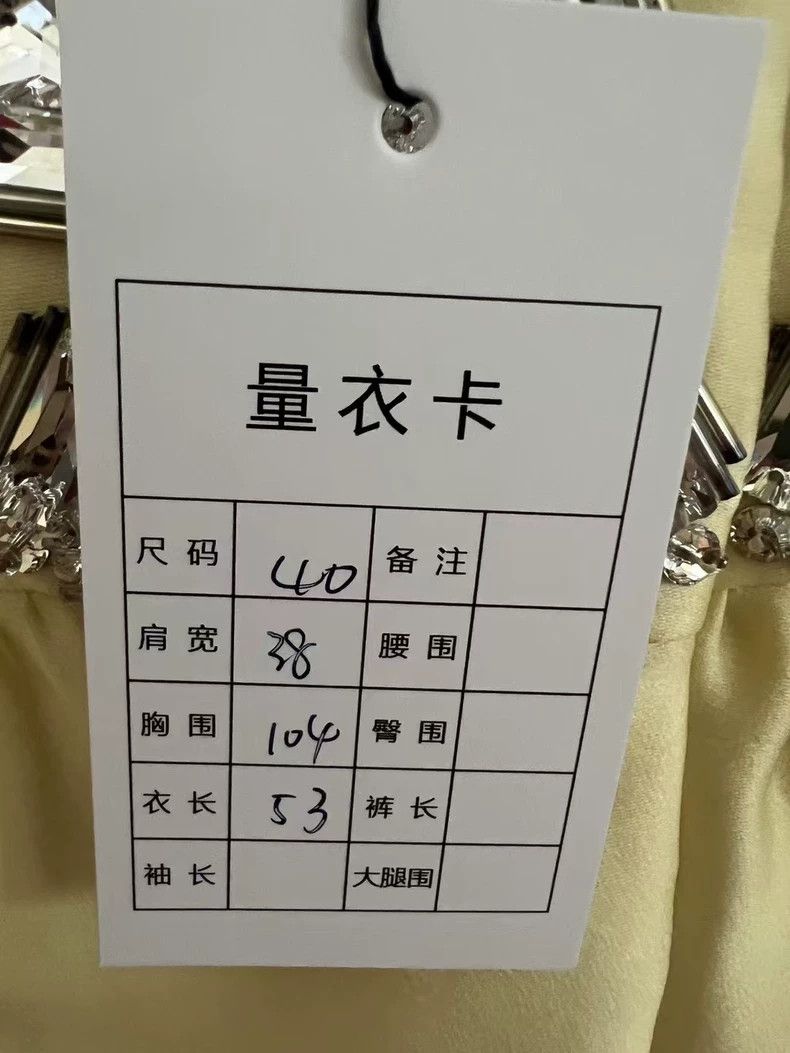 量衣卡
尺码 40 备注
肩宽 38 腰围
胸围 104 臀围
衣长 53 裤长
袖长 大腿围